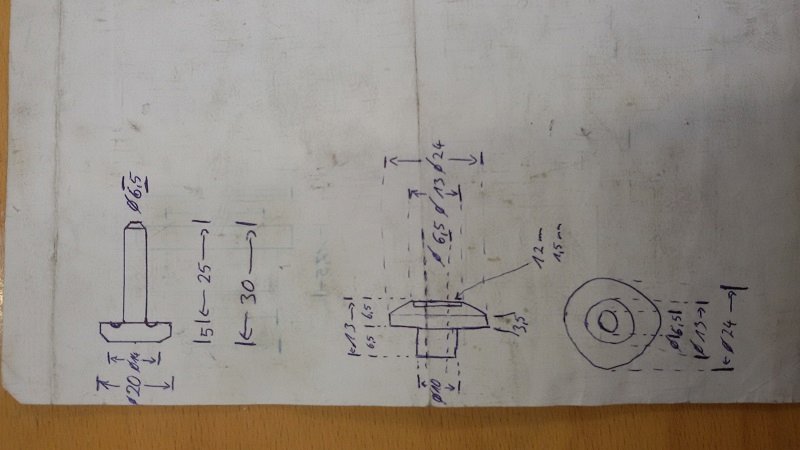 ø6,5
5 ← 25 →
← 30 →
ø20
ø24
ø13
ø6,5
12 mm
1,5 mm
← 13 →
6,5
6,5
3,5
ø10
ø6,5
ø13
ø24